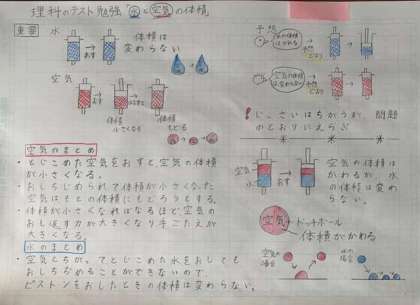 理科のテスト勉強 水と空気の体積
重要
水
体積は
変わらない
おす
空気
おす
はなすと
体積
小さくなる
体積
もどる
空気のまとめ
・とじこめた空気をおすと、空気の体積
が小さくなる。
・おしちぢめられて体積が小さくなった
空気はもとの体積にもどろうとする。
・体積が小さくなればなるほど空気の
おし返す力が大きくなり手ごたえが
大きくなる。
水のまとめ
・空気とちがってとじこめた水をおしても
おしちぢめることができないので、
ピストンをおしたときの体積は変わらない。
予想
空気の体積
は変わらない
おす
問題
空気
水
おす
空気の体積は
かわるが、水
の体積は変わ
らない。
空気
ドッチボール
体積がかわる
空気の
場合
水の
場合